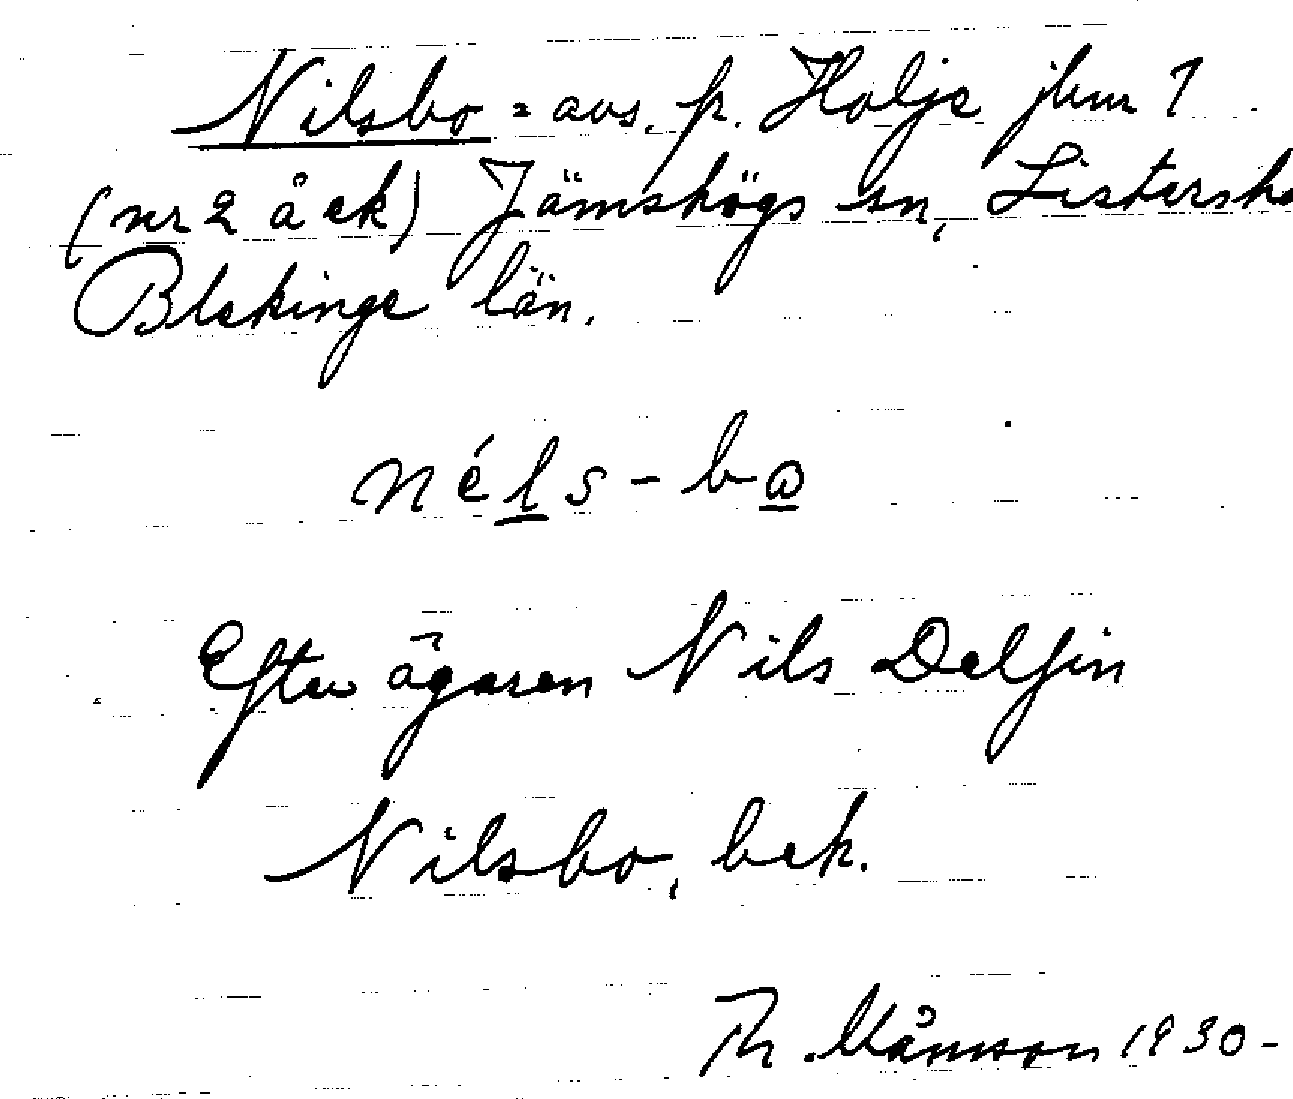 Nilsbo = avs. fr. Holje jbnr 7
(nr 2 å ek) Jämshögs sn, Listersh
Blekinge län.
néls-bω
Efter ägaren Nils Delfin
Nilsbo, bek.
Th. Månsson 1930-